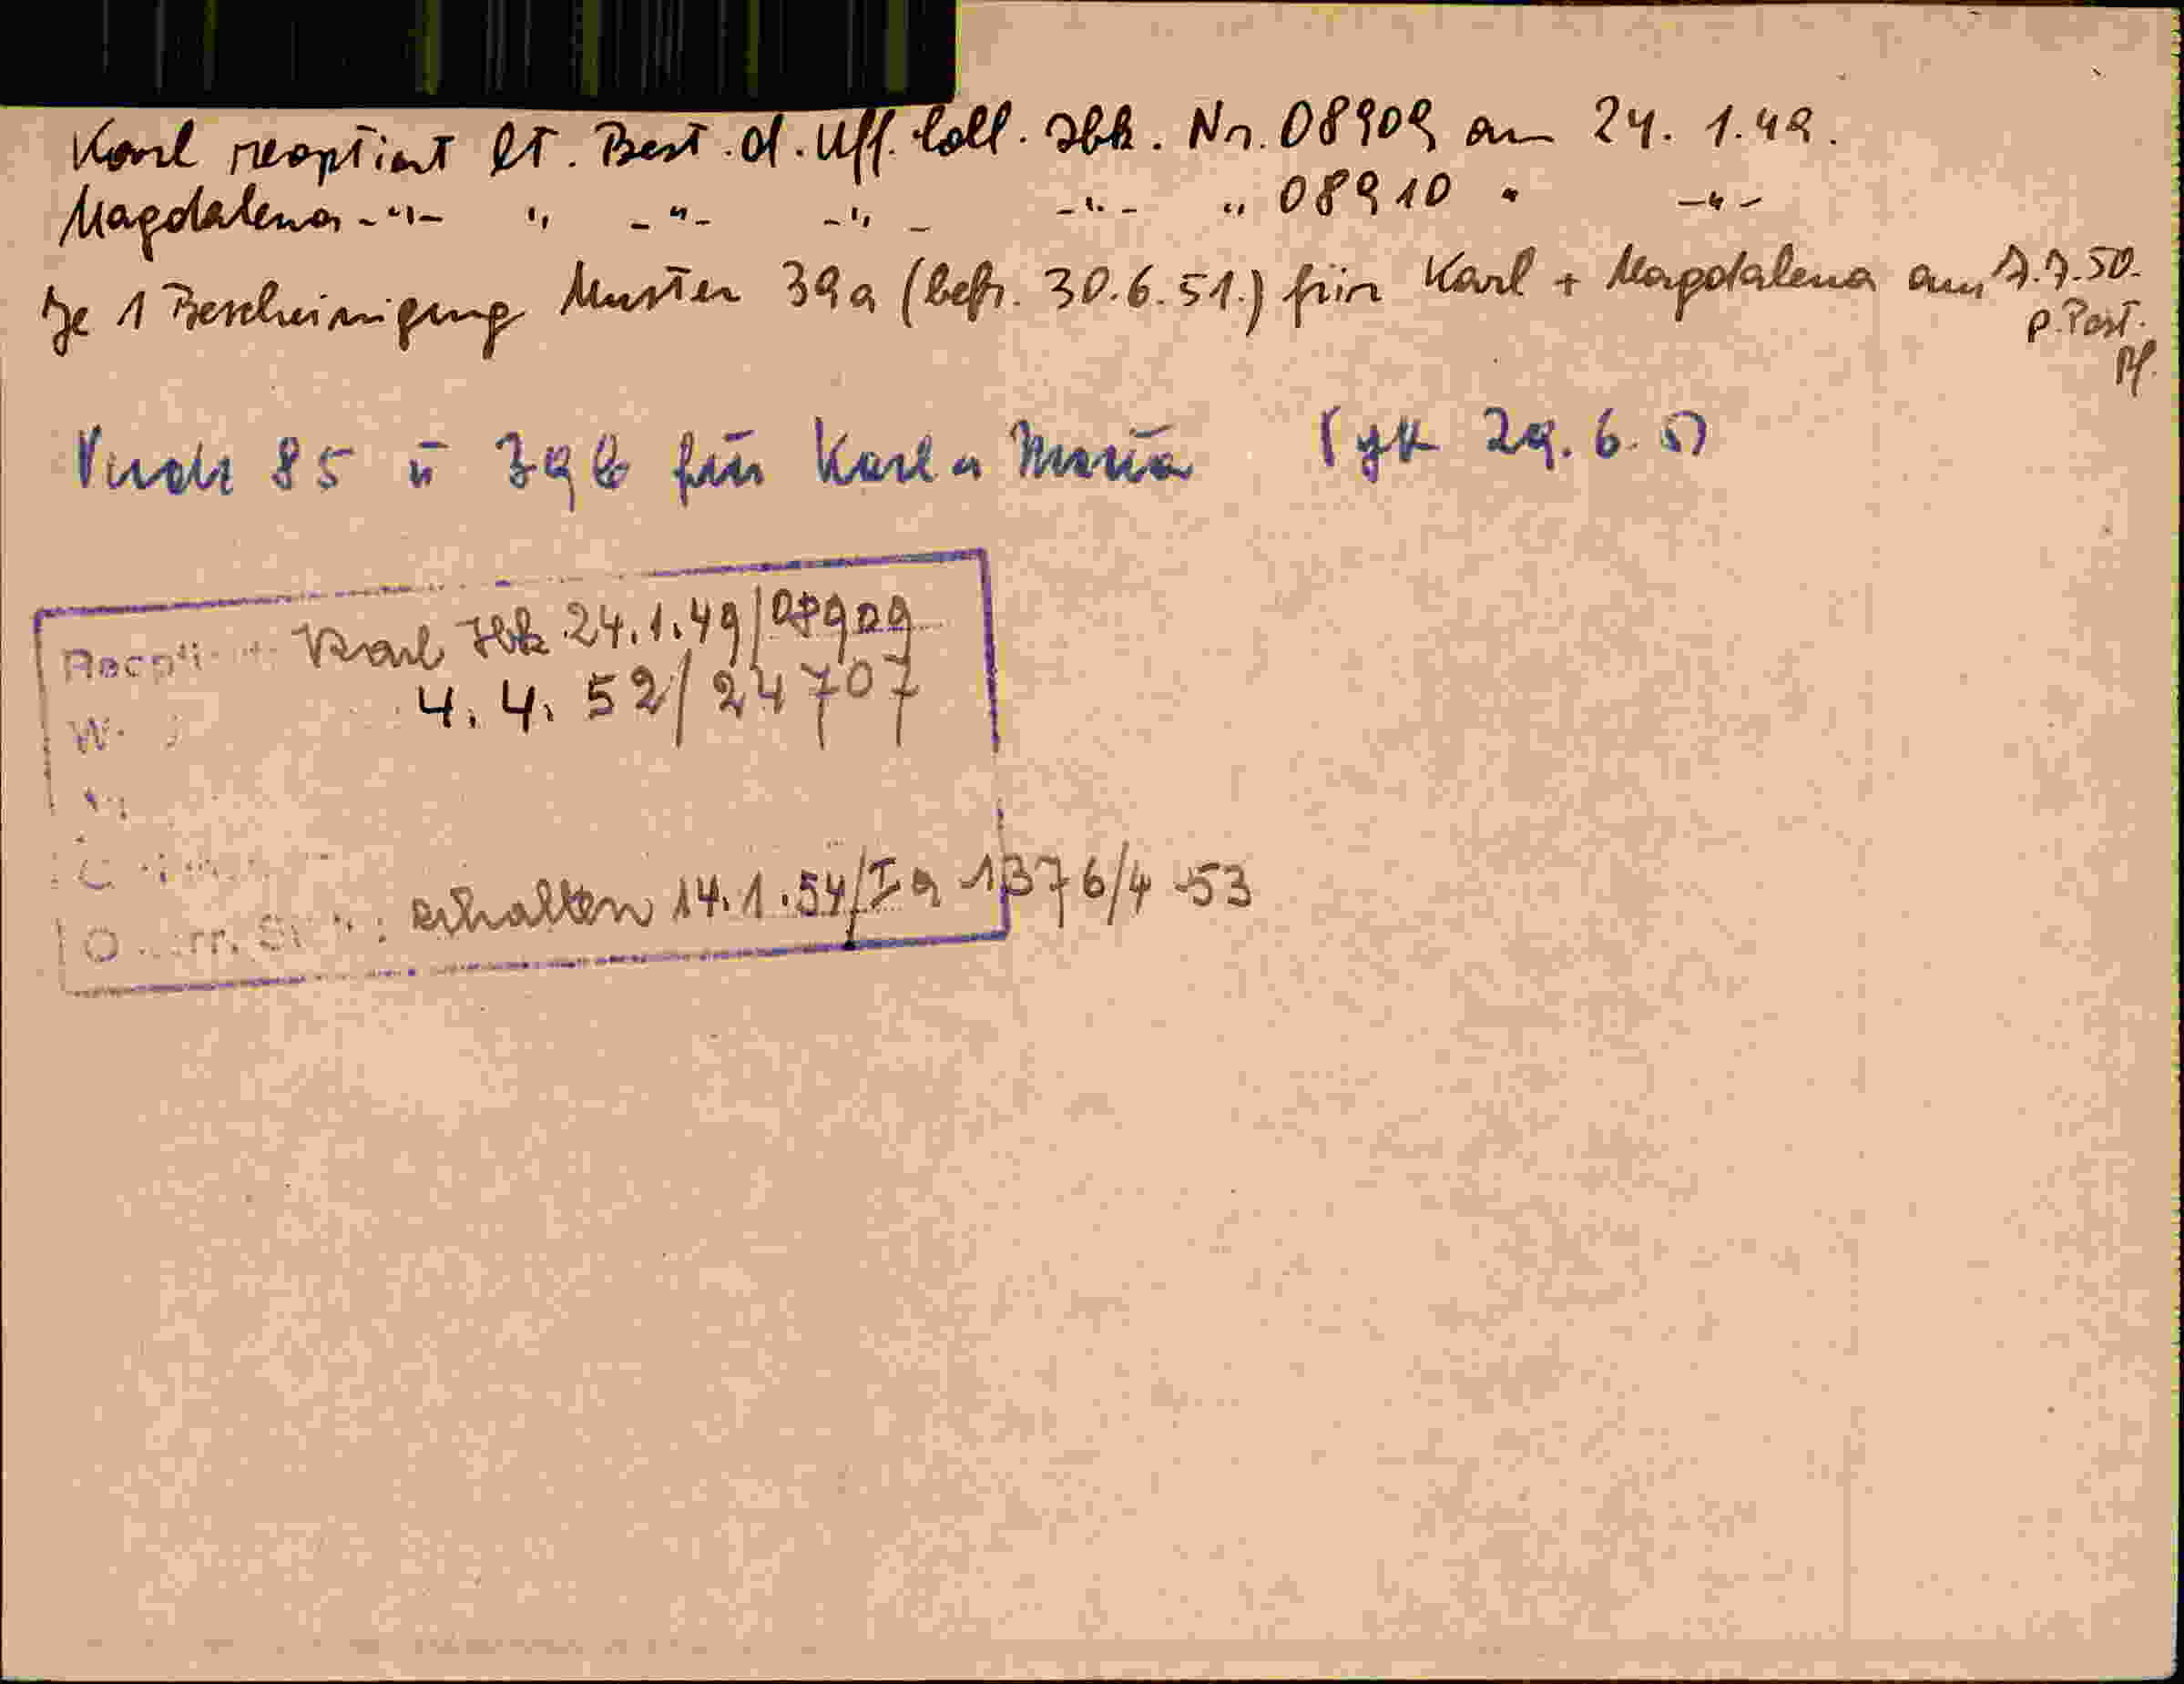 Karl reoptiert lt. Best. d. Uff. Coll. Ibk. Nr. 08909 am 24. 1. 49.
Magdalena -"- " -"- -"- -"- " 08910 " -"-
Je 1 Bescheinigung Muster 39a (befr. 30.6.51.) für Karl + Magdalena am 7.7.50.
p. Post.
Pf.
85 u 39b für Karl u Maria 29. 6. 51
Reopti Karl Ibk 24.1.49/08909
4. 4. 52/24707
erhalten 14.1.54/Ia-1376/4-53